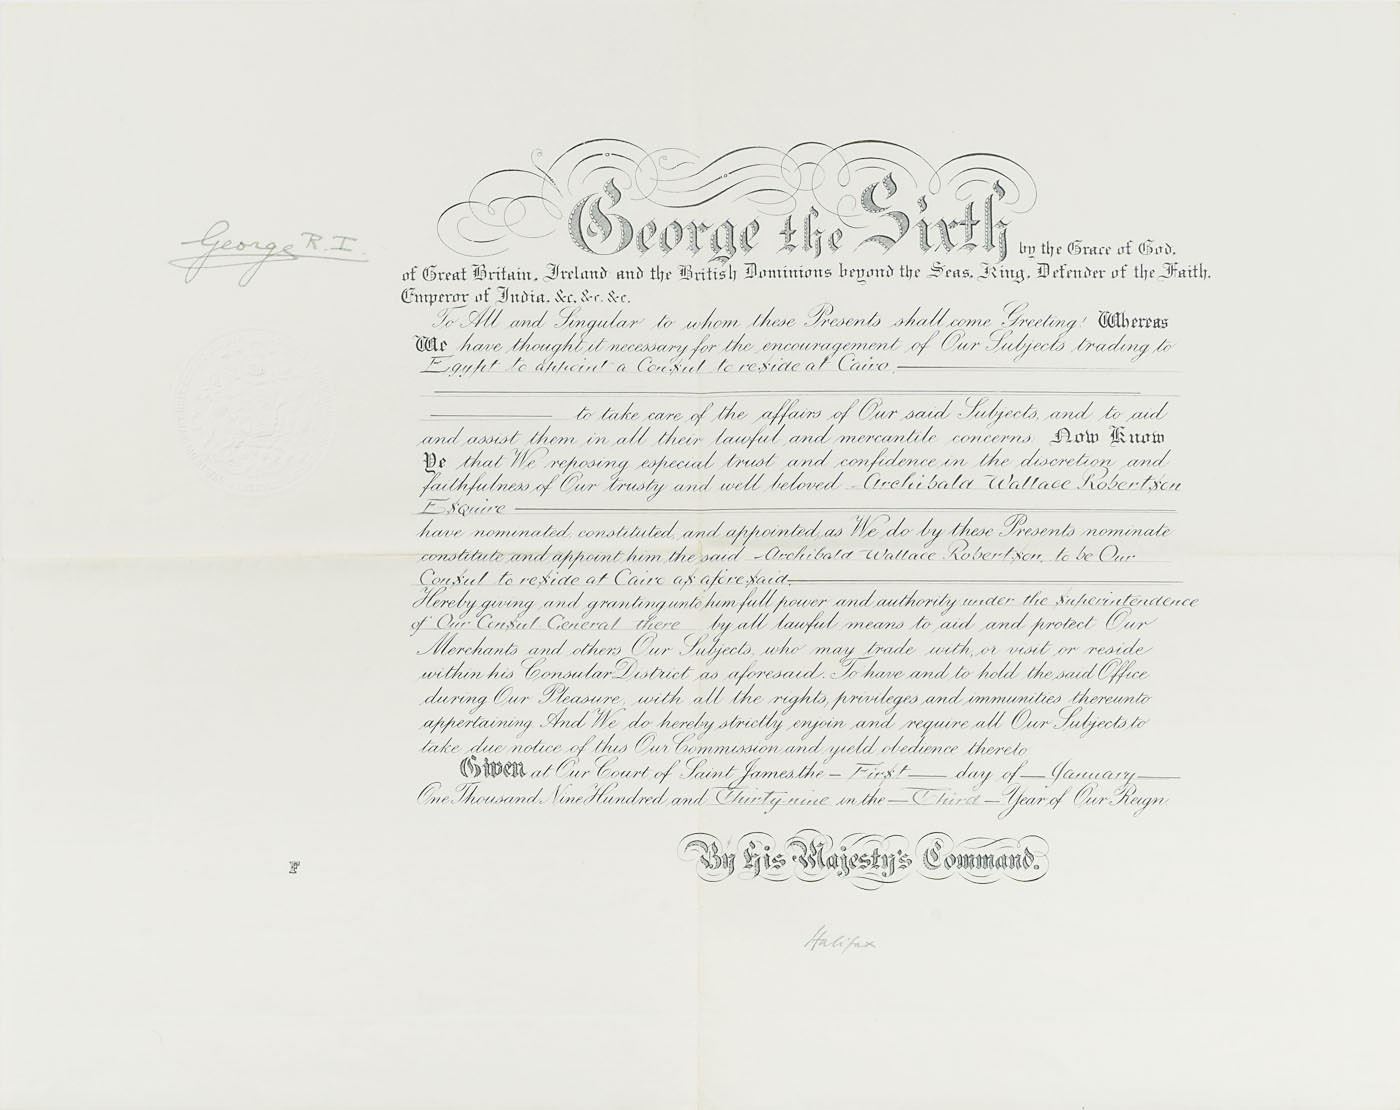 George R.I.
George the Sixth by the Grace of God,
of Great Britain, Ireland and the British Dominions beyond the Seas, King, Defender of the Faith,
Emperor of India, &c. &c. &c.
To All and Singular to whom these Presents shall come Greeting! Whereas
We have thought it necessary for the encouragement of Our Subjects trading to
Egypt to appoint a Consul to reside at Cairo,
to take care of the affairs of Our said Subjects, and to aid
and assist them in all their lawful and mercantile concerns. Now Know
Ye that We reposing especial trust and confidence in the discretion and
faithfulness of Our trusty and well beloved Archibald Wallace Robertson
Esquire
have nominated, constituted, and appointed, as We do by these Presents nominate
constitute and appoint him, the said Archibald Wallace Robertson, to be Our
Consul to reside at Cairo as aforesaid.
Hereby giving and granting unto him full power and authority under the superintendence
of Our Consul General there by all lawful means to aid and protect Our
Merchants and others Our Subjects, who may trade with, or visit or reside
within his Consular District as aforesaid. To have and to hold the said Office
during Our Pleasure, with all the rights, privileges and immunities thereunto
appertaining And We do hereby strictly enjoin and require all Our Subjects to
take due notice of this Our Commission and yield obedience thereto
Given at Our Court of Saint James, the First day of January
One Thousand Nine Hundred and Thirty nine in the Third Year of Our Reign.
By His Majesty's Command.
F
Halifax